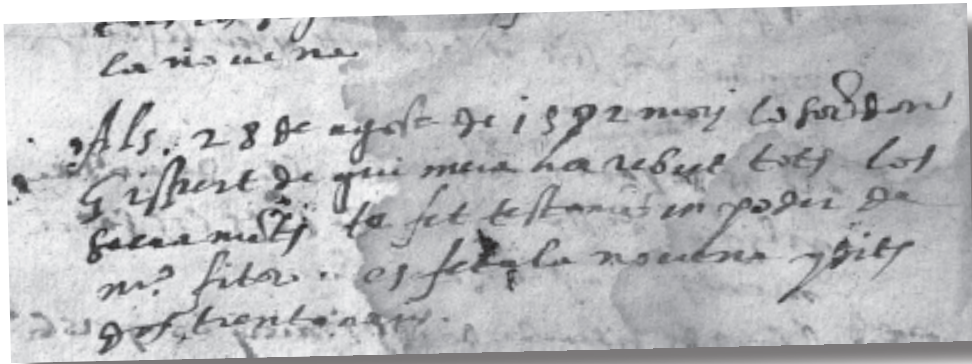 la novena
Als 28 de agost de 1592 mori lo sor don
Gispert de guimera ha rebut tots los
sacramẽts te fet testamẽt en poder de
mº fiter. es feta la novena y dits
dos trentenaris.